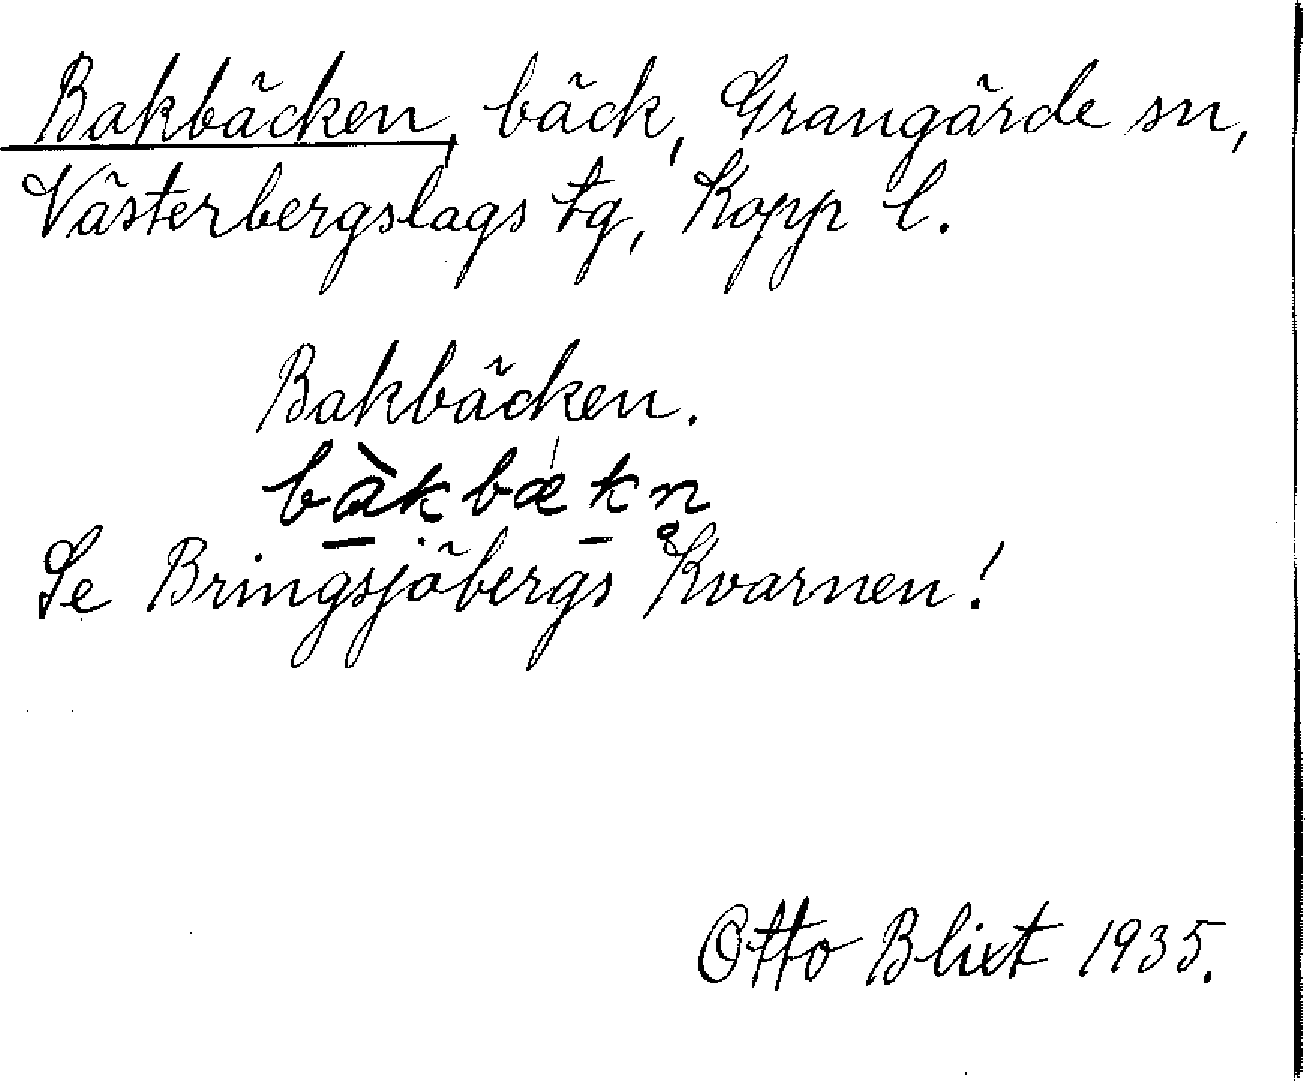 Bakbäcken, bäck, Grangärde sn,
Västerbergslags tg, Kopp l.
Bakbäcken.
bàkbækn̥
Se Bringsjöbergs Kvarnen!
Otto Blixt 1935.